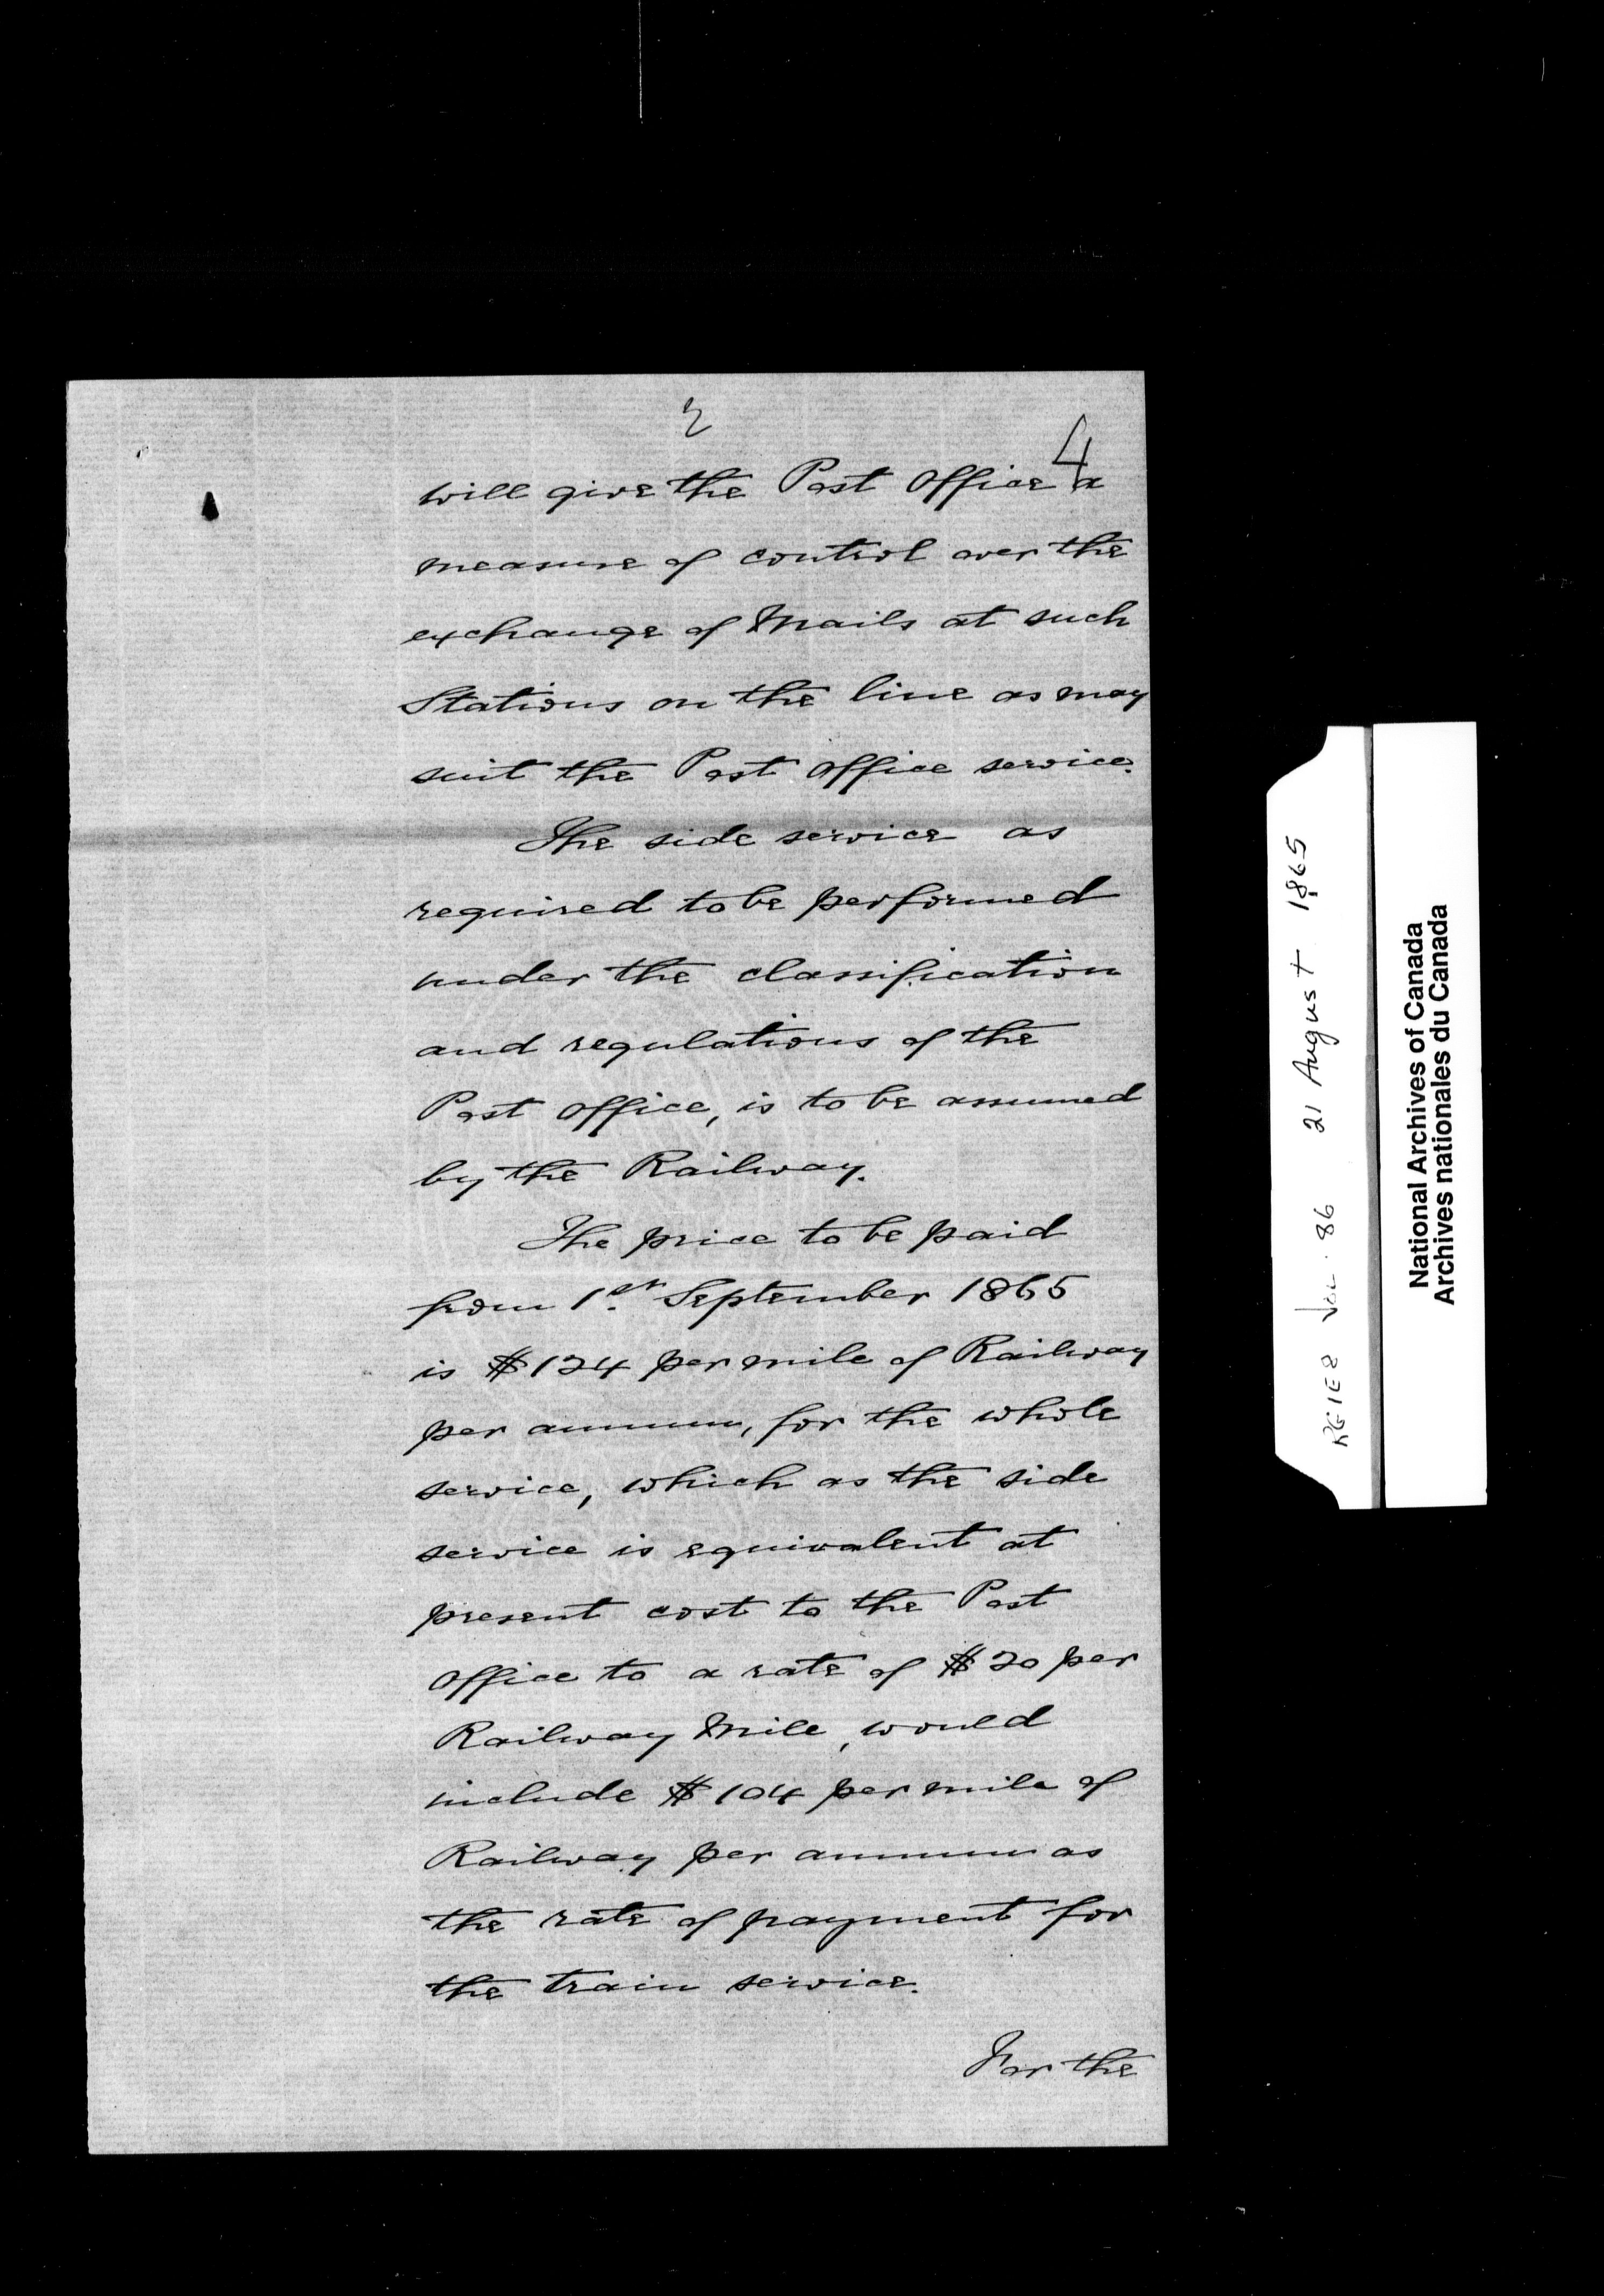 2
4
will give the Post Office a
measure of control over the
exchange of Mails at such
Stations on the line as may
suit the Post Office service.
The side service as
required to be performed
under the classification
and regulations of the
Post Office, is to be assumed
by the Railway.
The price to be paid
from 1st September 1865
is $124 per mile of Railway
per annum, for the whole
service, which as the side
service is equivalent at
present cost to the Post
Office to a rate of $20 per
Railway Mile, would
include $104 per mile of
Railway per annum as
the rate of payment for
the train service.
For the
RG1E8 Vol. 86 21 August 1865
National Archives of Canada
Archives nationales du Canada